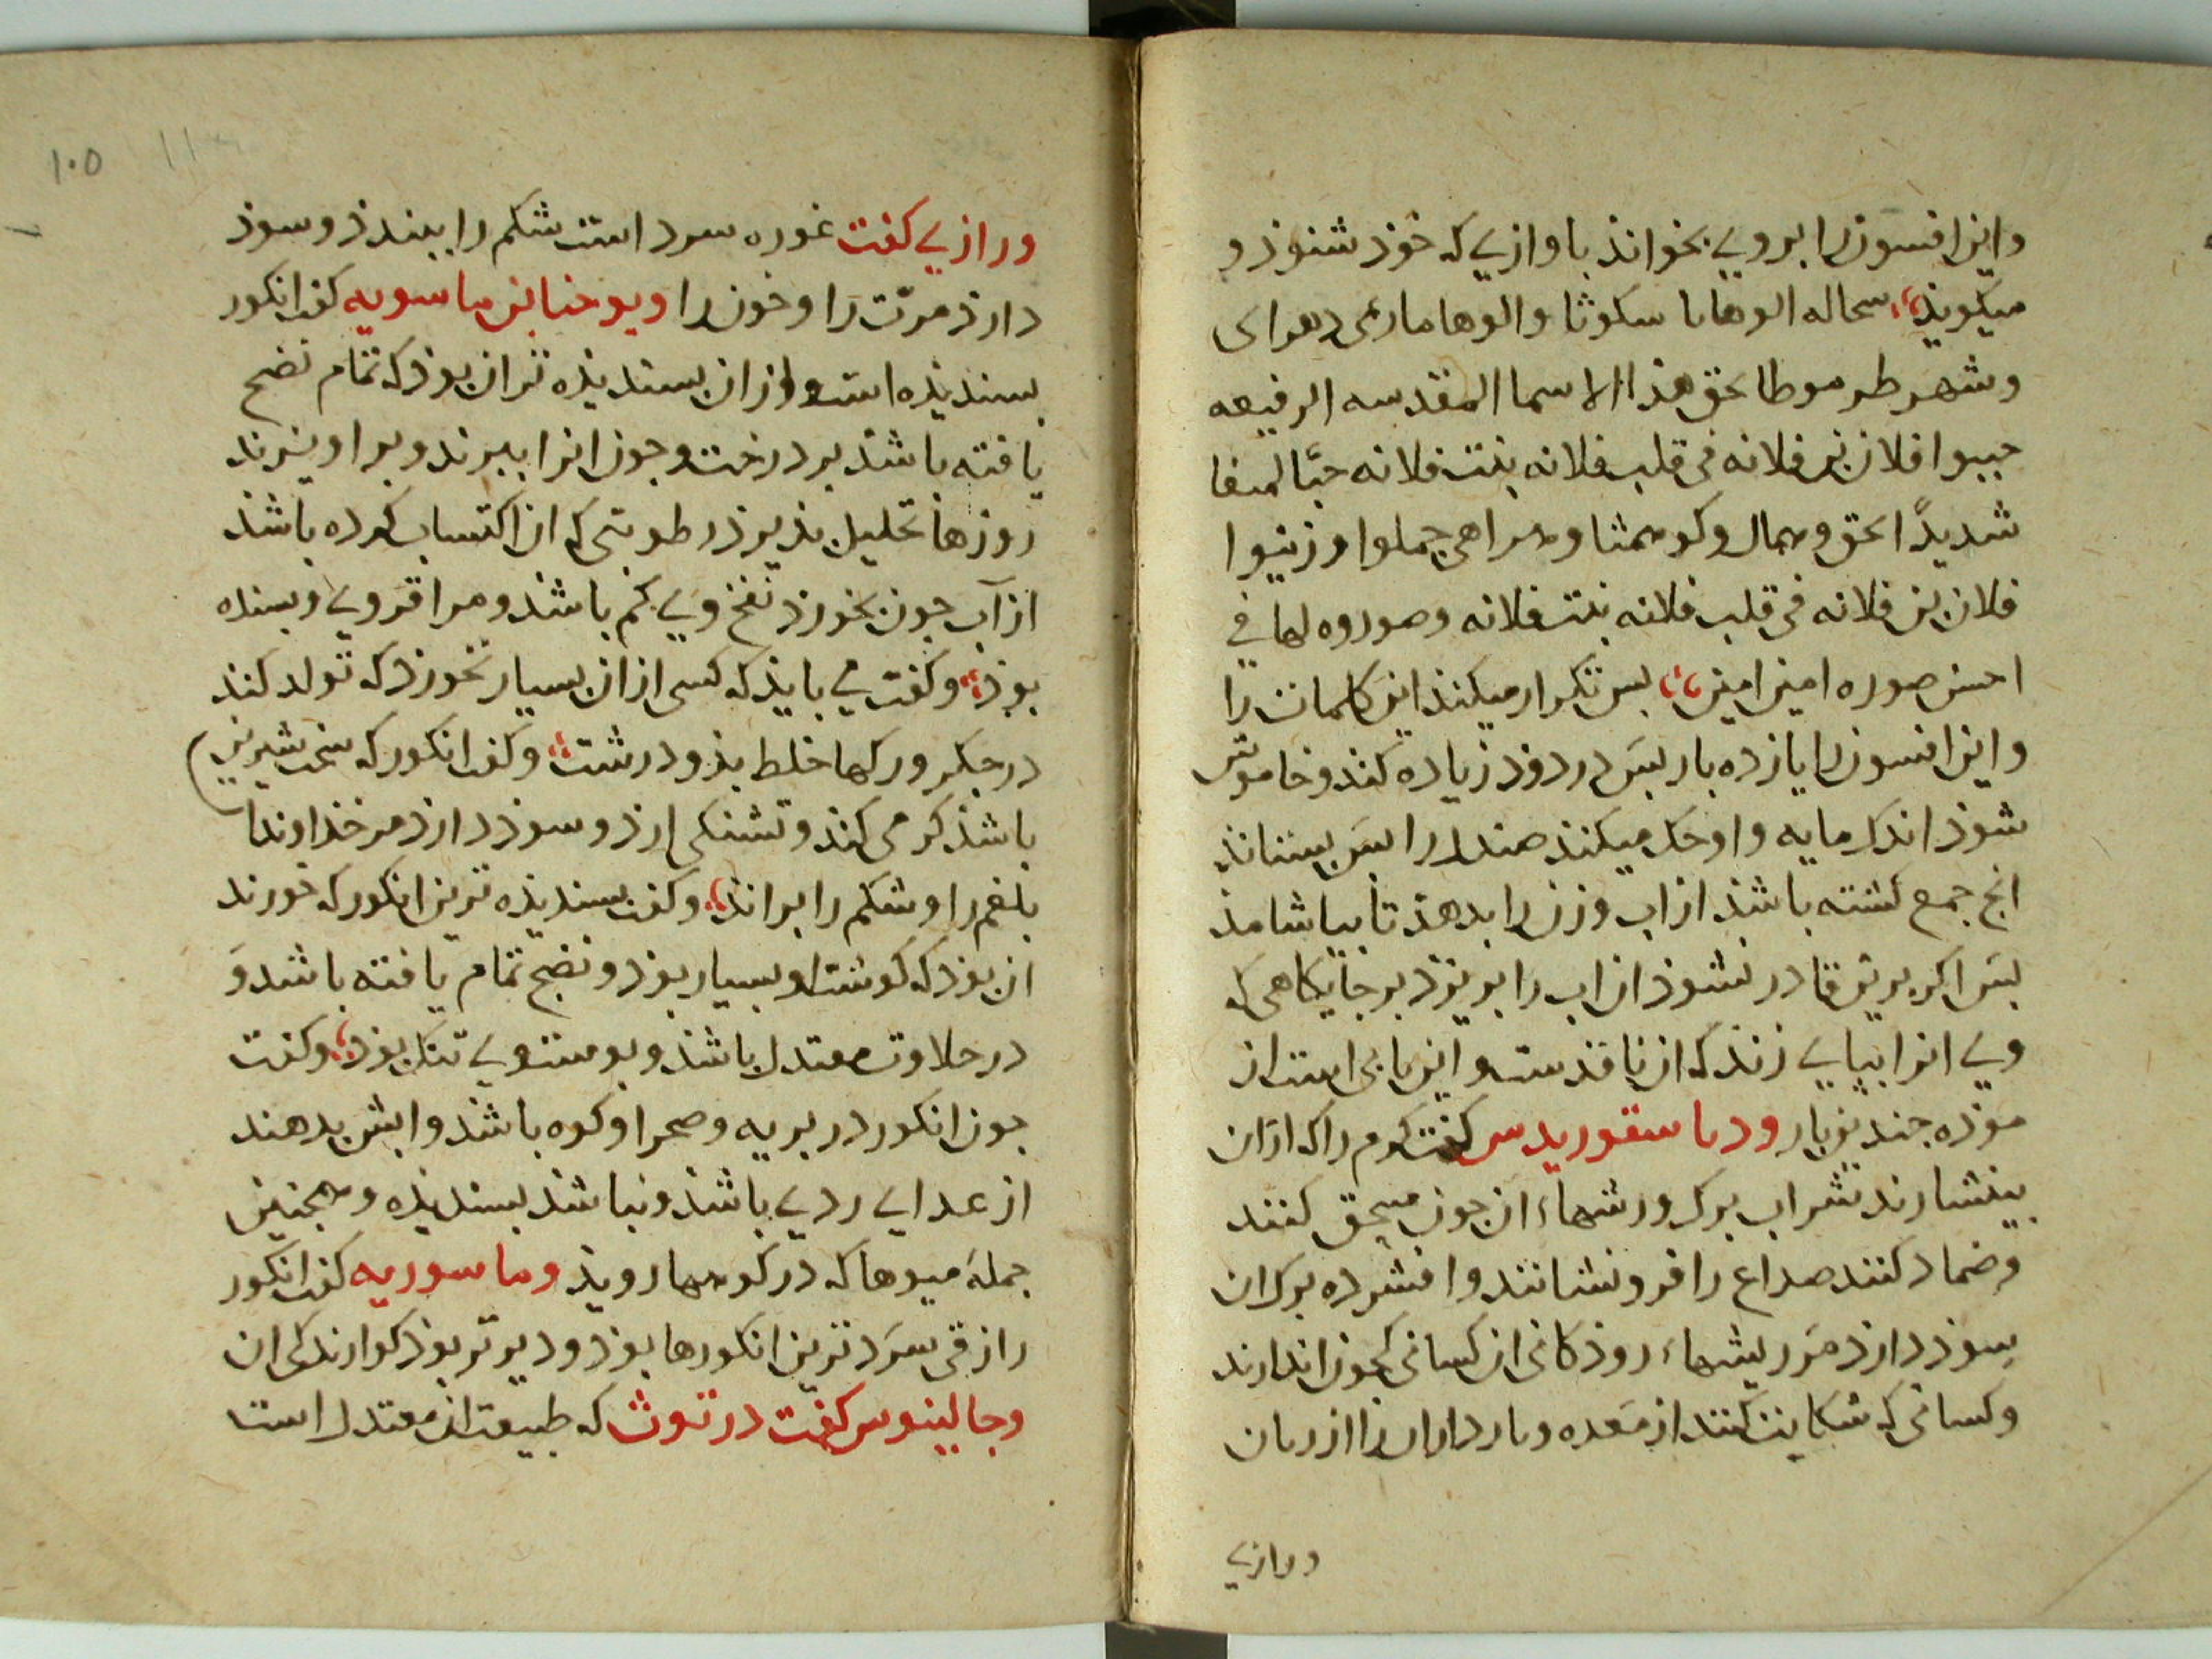 واین افسون را بروی بخواند باوازی که خوذ شنوذ و
میکویذ سحاله الوهاىا سکوثا والوها مارىمى دهوا الى
وشهر طرموطا بحق هذا الاسما المقدسه الرفیعه
حببوا فلان بن فلانه فی قلب فلانه بنت فلانه حبّا
شدیدًا بحق وجملوا وزینوا
فلان بن فلانه فی قلب فلانه بنت فلانه وصوروه لها فی
احسن صوره امین امین بس تکرار میکند این کلمات را
واین افسون را یازده بار بس درذوذ زیاده کند وخاموش
شوذ اندک مایه واو حک میکند صندل را بس بستاند
انج جمع کشته باشذ از اب وزن را بدهذ تا بیاشامذ
بس اکر برین قادر نشوذ ان اب را بریزد برجایکاهی که
وی انرا ببایی زند که ان نافذست واین بابی است از
موذه جندین بار ودیاسقوریدس کفت کرم را که ازان
بیفشارند شراب برک ورشهاء ان جون سحق کنند
وضماد کنند صداع را فرونشانند وافشرده برک ان
سوذ دارذ مر ریشهاء روذکانی از کسانی که خون اندارند
وکسانی که شکایت کنند از معده وبارداران را از زیان
ورازی
۱۰۵
ورازی کفت غوره سرد است شکم را ببندذ وسوذ
دارذ مرّت را وخون را ویوحنا بن ماسویه کفت انکور
بسندیذه است واز ان بسندیذه تر ان بوذ که تمام نضج
یافته باشذ بر درخت وجون انرا ببرند وبراویزند
روزها تحلیل بذیرذ رطوبتی که ان اکتساب کرده باشذ
از آب جون بخورذ نفخ وی کم باشذ ومراقروی وبسنده
بوذ وکفت می بایذ که کسی از ان بسیار نخورذ که تولد کند
در جکر ورکها خلط بذ ودرشت وکفت انکور که سخت شیرین
باشذ کرمی کند وتشنکی ارذ وسوذ دارذ مر خذاوندا
بلغم را وشکم را براند وکفت بسندیذه ترین انکور که خورند
ان بوذ که کوشت او بسیار بوذ ونضج تمام یافته باشد و
در حلاوت معتدل باشذ وبوست وی تنک بوذ وکفت
جون انکور در بریه وصحرا وکوه باشذ وابش بدهند
از عدایی ردی باشذ ونباشذ بسندیذه وهمجنین
جمله میوها که در کوهها رویذ وماسوریه کفت انکور
رازقی سرَد ترین انکورها بوذ ودیرتر بوذ کوارندکی ان
وجالینوس کفت در توث که طبیعت ان معتدل است